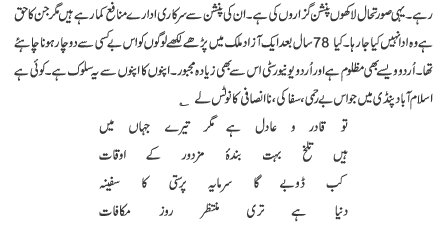 رہے۔ یہی صورتحال لاکھوں پنشن گزاروں کی ہے۔ ان کی پنشن سے سرکاری ادارے منافع کما رہے ہیں مگر جن کا حق
ہے وہ ادا نہیں کیا جا رہا۔ کیا 78 سال بعد ایک آزاد ملک میں پڑھے لکھے لوگوں کو اس بے کسی سے دو چار ہونا چاہئے
تھا۔ اُردو ویسے بھی مظلوم ہے اور اُردو یونیورسٹی اس سے بھی زیادہ مجبور۔ اپنوں کا اپنوں سے یہ سلوک ہے۔ کوئی ہے
اسلام آباد پنڈی میں جو اس بے رحمی، سفاکی، نا انصافی کا نوٹس لے ؎
تو قادر و عادل ہے مگر تیرے جہاں میں
ہیں تلخ بہت بندۂ مزدور کے اوقات
کب ڈوبے گا سرمایہ پرستی کا سفینہ
دنیا ہے تری منتظر روز مکافات